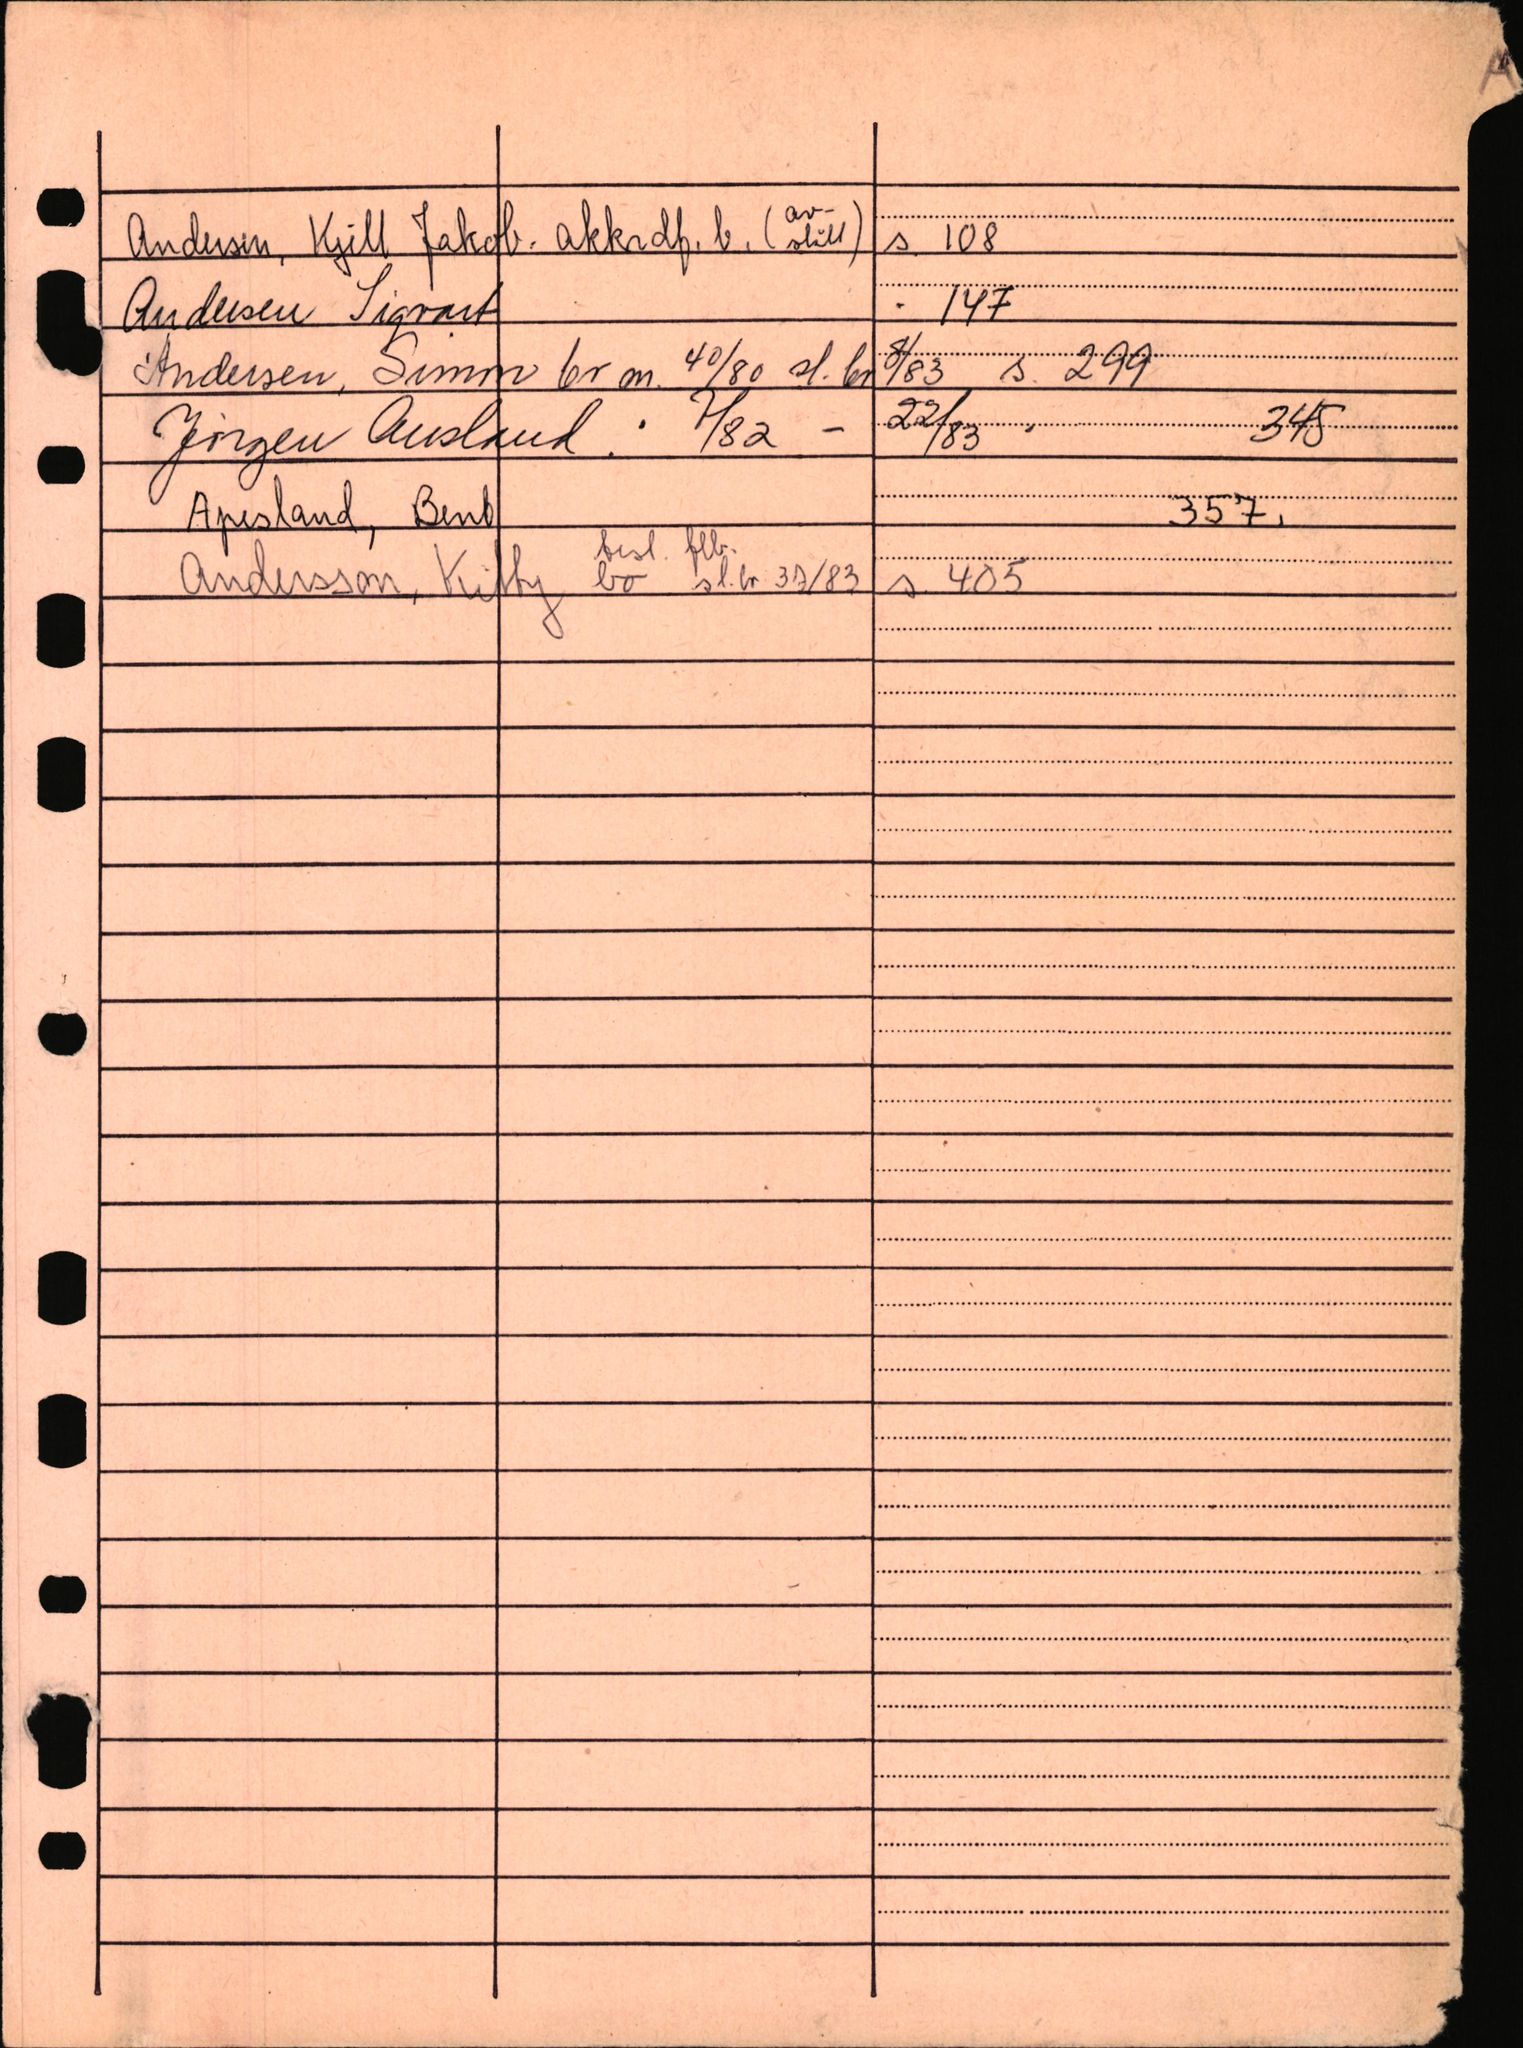 A
Andersen, Kjell Jakob. akkrdf. b. (av-slått) s. 108
Andersen Sigvart " 147
Andersen, Simon br m. 40/80 sl. br 8/83 s. 299
Jörgen Ausland . 7/82 - 22/83 . 345
Apesland, Bent 357.
Andersson, Kitty best. flb. bo sl. br 37/83 s. 405